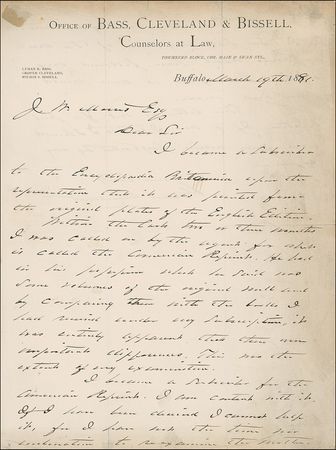 OFFICE OF BASS, CLEVELAND & BISSELL,
Counselors at Law,
TOWNSEND BLOCK, COR. MAIN & SWAN STS.,
LYMAN K. BASS,
GROVER CLEVELAND,
WILSON S. BISSELL.
Buffalo, March 19th 1881.
J. W. Morris Esq
Dear Sir
I became a subscriber
to the Encyclopedia Britannica upon the
representation that it was printed from
the original plates of the English Edition.
Within the last two or three months
I was called on by the agent for what
is called the American Reprint. He had
in his possession what he said was
some volumes of the original work and
by comparing them with the books I
had received under my subscription, it
was entirely apparent that there were
important differences. This was the
extent of my examination.
I became a subscriber for the
American Reprint. I am content with it.
If I have been deceived I cannot help
it, for I have not the time nor
inclination to re-examine the matter